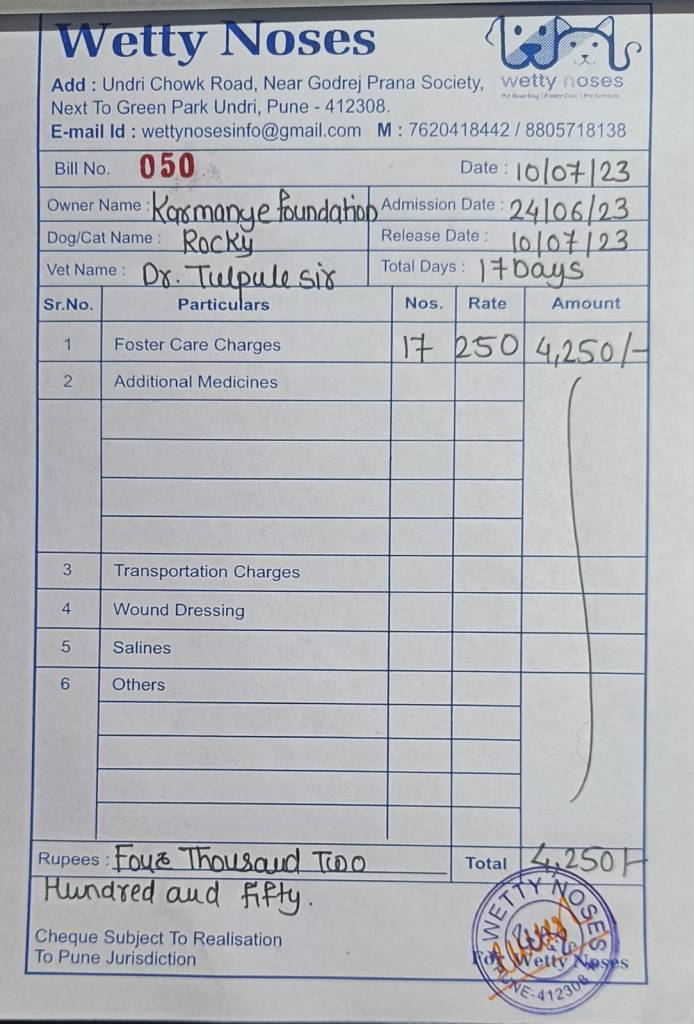 Wetty Noses
wetty noses
Pet Boarding | Foster Care | Pet Services
Add : Undri Chowk Road, Near Godrej Prana Society,
Next To Green Park Undri, Pune - 412308.
E-mail Id : wettynosesinfo@gmail.com M : 7620418442 / 8805718138
Bill No. 050 Date : 10/07/23
Owner Name : Karmanye foundation Admission Date : 24/06/23
Dog/Cat Name : Rocky Release Date : 10/07/23
Vet Name : Dr. Tulpule sir Total Days : 17 Days
Sr.No. Particulars Nos. Rate Amount
1 Foster Care Charges 17 250 4,250/-
2 Additional Medicines
3 Transportation Charges
4 Wound Dressing
5 Salines
6 Others
Rupees : Four Thousand Two Total 4,250/-
Hundred and fifty.
Cheque Subject To Realisation
To Pune Jurisdiction
For Wetty Noses
WETTY NOSES
PUNE-412308